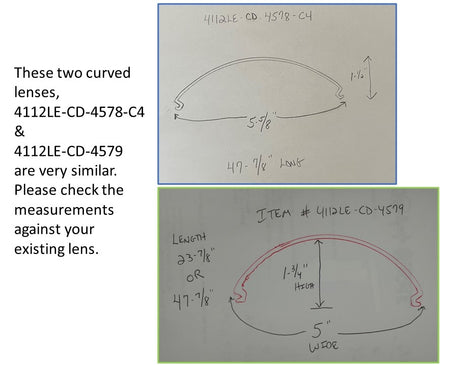 These two curved
lenses,
4112LE-CD-4578-C4
&
4112LE-CD-4579
are very similar.
Please check the
measurements
against your
existing lens.
4112LE-CD 4578-C4
1-½"
5-5/8"
47-7/8" LONG
ITEM # 4112LE-CD-4579
LENGTH
23-7/8"
OR
47-7/8"
1-3/4"
HIGH
5"
WIDE